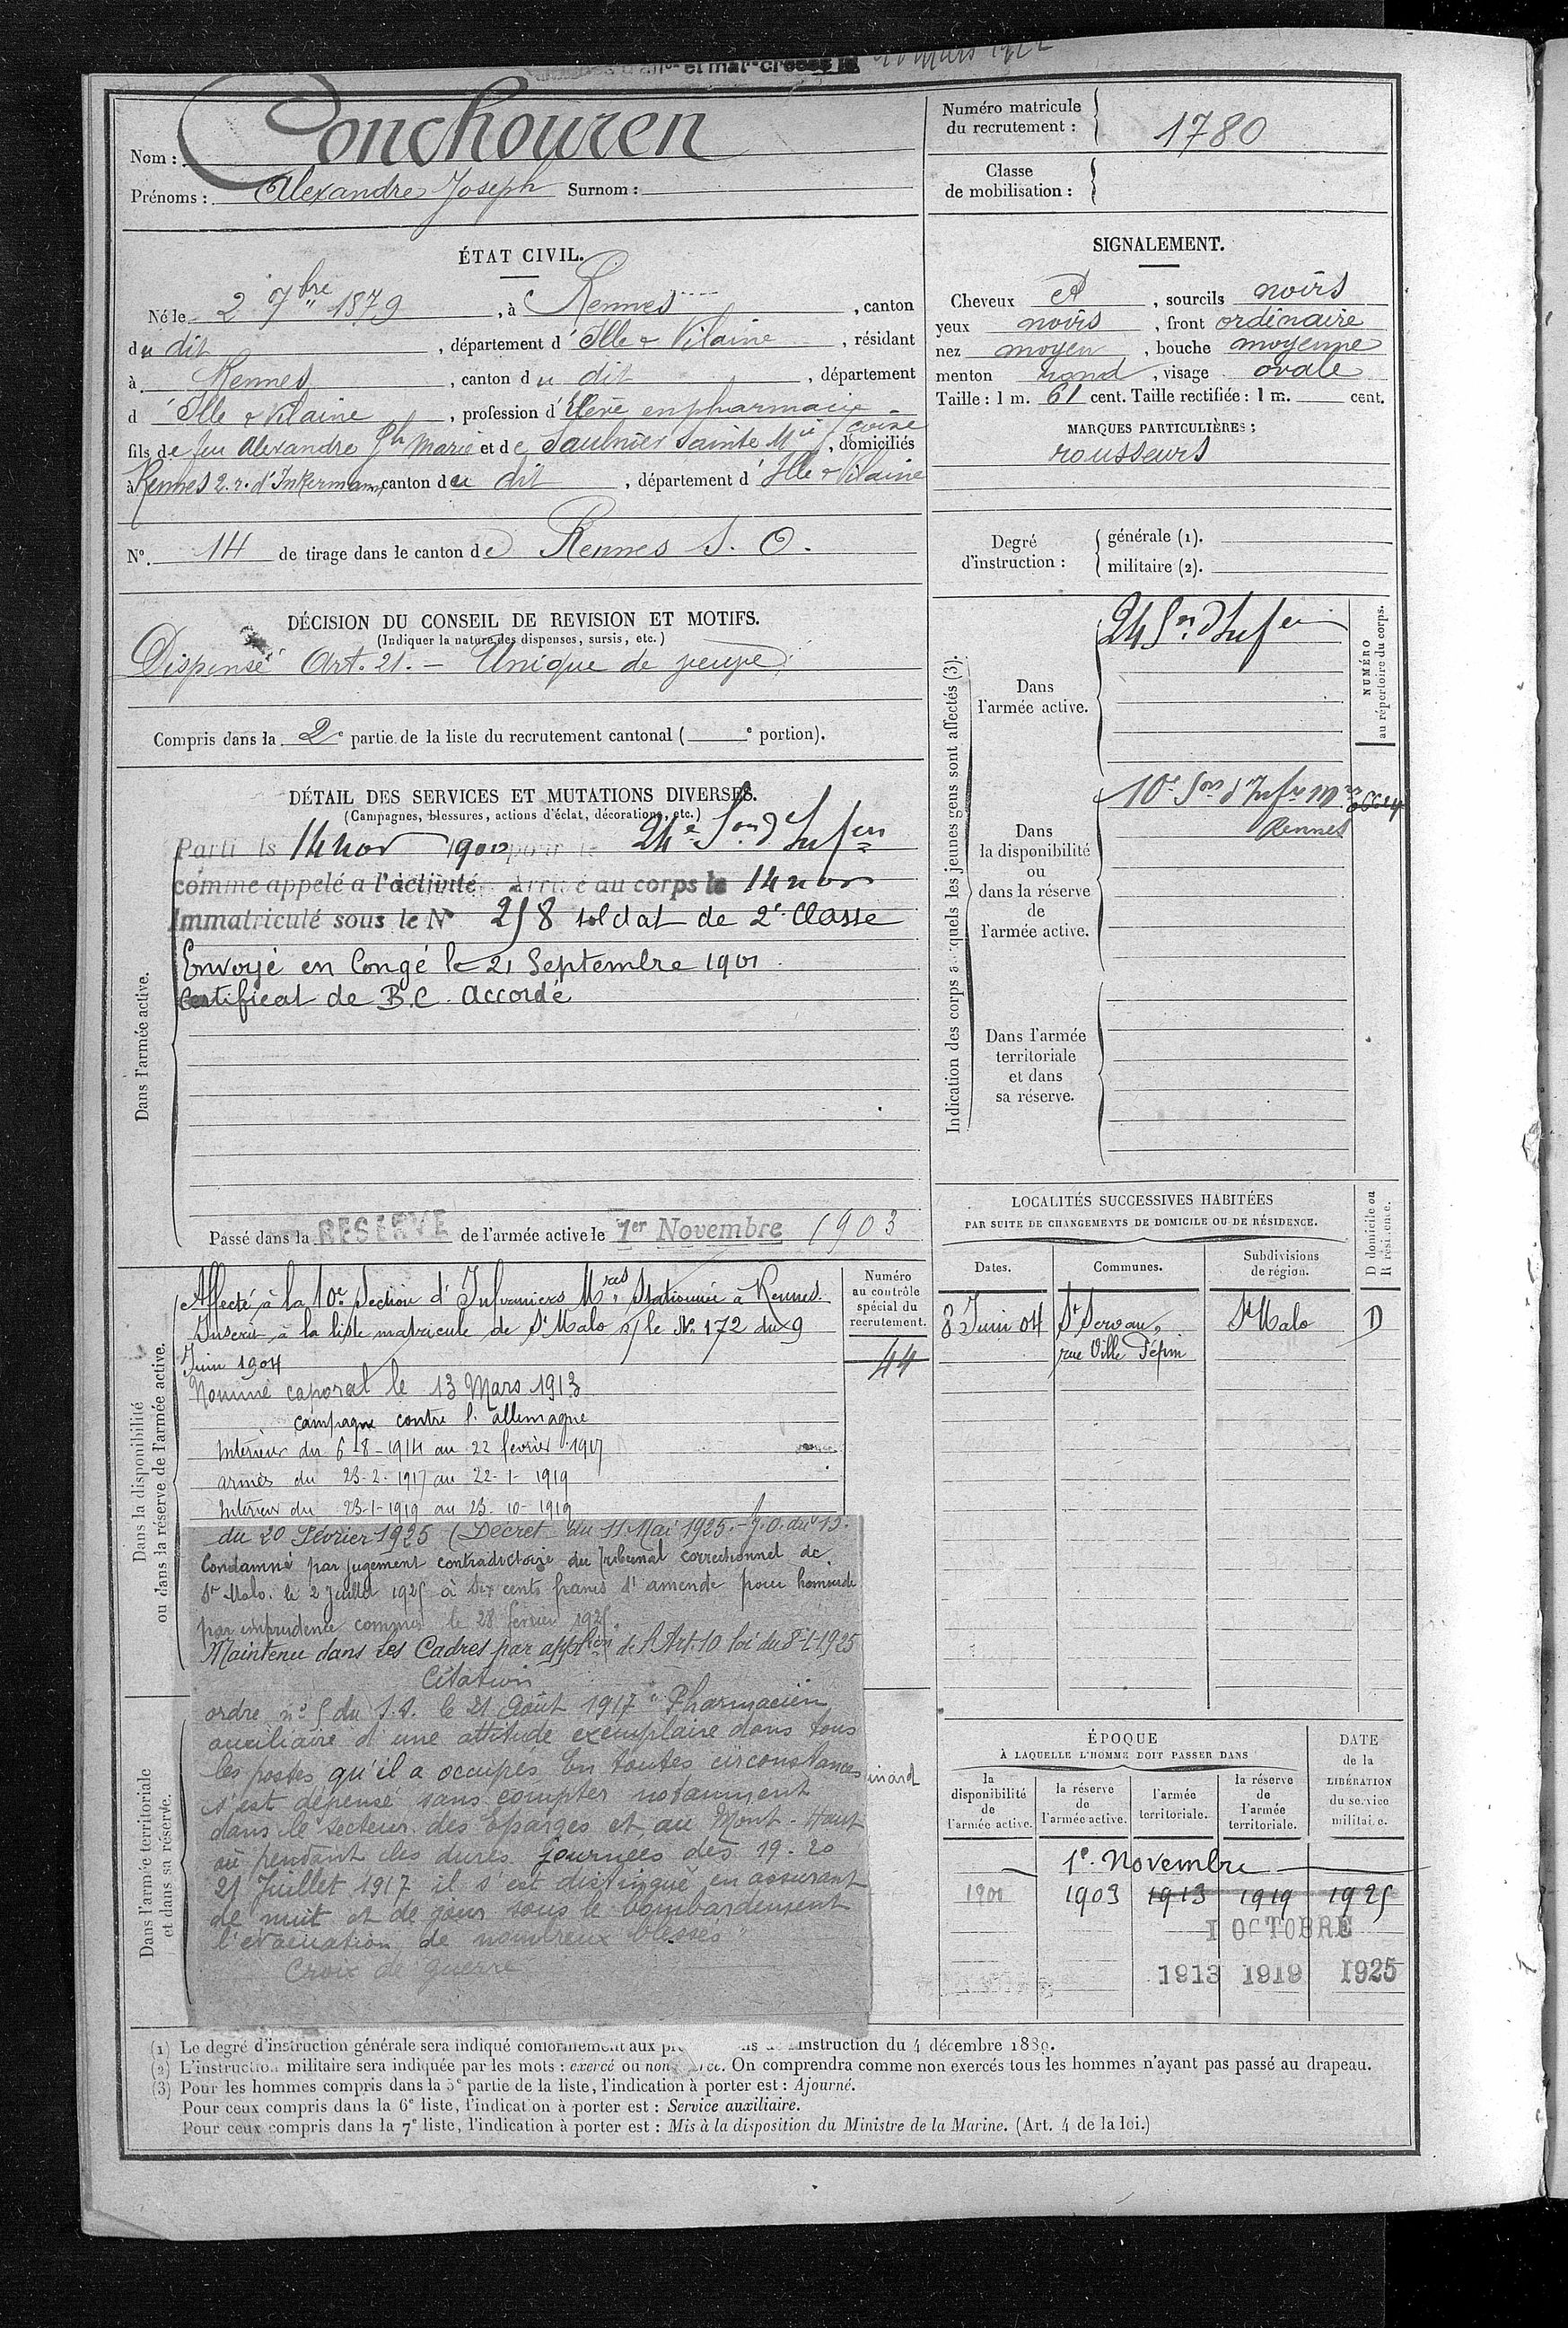 et mat cresés le 20 Mars 1922
Nom : Conchouren
Prénoms : Alexandre Joseph Surnom :
Numéro matricule
du recrutement : 1780
Classe
de mobilisation :
ÉTAT CIVIL.
Né le 2 7bre 1879, à Rennes, canton
du dit, département d'Ille & Vilaine, résidant
à Rennes, canton du dit, département
d'Ille & Vilaine, profession d'Elève en pharmacie
fils de feu Alexandre Jph Marie et de Saulnier Sainte Mie Fcoise, domiciliés
à Rennes 2. r. d'Inkermann, canton du dit, département d'Ille & Vilaine
N°. 14 de tirage dans le canton de Rennes S. O.
SIGNALEMENT.
Cheveux et, sourcils noirs
yeux noirs, front ordinaire
nez moyen, bouche moyenne
menton rond, visage ovale
Taille : 1 m. 61 cent. Taille rectifiée : 1 m. cent.
MARQUES PARTICULIÈRES :
rousseurs
Degré
d'instruction :
générale (1).
militaire (2).
DÉCISION DU CONSEIL DE REVISION ET MOTIFS.
(Indiquer la nature des dispenses, sursis, etc.)
Dispensé Art. 21. - Unique de veuve
Compris dans la 2e partie de la liste du recrutement cantonal ( e portion).
DÉTAIL DES SERVICES ET MUTATIONS DIVERSES.
(Campagnes, blessures, actions d'éclat, décorations, etc.)
Dans l'armée active.
Parti le 14 nov 1900 pour le 24e Son d'Infers
comme appelé à l'activité Arrivé au corps le 14 nov
Immatriculé sous le N° 258 soldat de 2e Classe
Envoyé en Congé le 21 Septembre 1901.
Certificat de B.C. accordé
Passé dans la RESERVE de l'armée active le 1er Novembre 1903
Indication des corps auxquels les jeunes gens sont affectés (3).
NUMÉRO
au répertoire du corps.
Dans
l'armée active.
24 Son d'Infer
Dans
la disponibilité
ou
dans la réserve
de
l'armée active.
10e Son d'Infrs Mres
Rennes
Dans l'armée
territoriale
et dans
sa réserve.
Dans la disponibilité
ou dans la réserve de l'armée active.
Affecté à la 10e Section d'Infirmiers Mres Stationnée à Rennes.
Inscrit à la liste matricule de St Malo s/ le No 172 du 9
Juin 1904
Nommé caporal le 13 Mars 1913
Campagne contre l'allemagne
Intérieur du 6-8-1914 au 22 fevrier 1917
armées du 23-2-1917 au 22-1-1919
Intérieur du 23-1-1919 au 23-10-1919
Numéro
au contrôle
spécial du
recrutement.
44
du 20 Février 1925 (Décret du 11 Mai 1925. - J.O. du 13.
Condamné par jugement contradictoire du Tribunal correctionnel de
St Malo. le 2 Juillet 1925 à Six cents francs d'amende pour homicide
par imprudence commis le 28 fevrier 1925.
Maintenu dans les Cadres par applion de l'Art. 10 loi du 8-1-1925
Citation
ordre n° 5 du S.S. le 21 Août 1917 "Pharmacien
auxiliaire d'une attitude exemplaire dans tous
les postes qu'il a occupés En toutes circonstances
s'est dépensé sans compter notamment
dans le secteur des Eparges et au Mont-Haut
où pendant les dures journées des 19-20
21 Juillet 1917 il s'est distingué en assurant
de nuit et de jour sous le bombardement
l'évacuation de nombreux blessés"
Croix de guerre
Dans l'armée territoriale
et dans sa réserve.
LOCALITÉS SUCCESSIVES HABITÉES
PAR SUITE DE CHANGEMENTS DE DOMICILE OU DE RÉSIDENCE.
D domicile ou
R résidence.
Dates. Communes. Subdivisions
de région.
8 Juin 04 St Servan, St Malo D
rue Ville Pépin
ÉPOQUE
À LAQUELLE L'HOMME DOIT PASSER DANS
DATE
de la
LIBÉRATION
du service
militaire.
la
disponibilité
de
l'armée active.
la réserve
de
l'armée active.
l'armée
territoriale.
la réserve
de
l'armée
territoriale.
1e Novembre
1900 1903 1913 1919 1925
1 OCTOBRE
1913 1919 1925
(1) Le degré d'instruction générale sera indiqué conformément aux instruction du 4 décembre 1889.
(2) L'instruction militaire sera indiquée par les mots : exercé ou non exercé. On comprendra comme non exercés tous les hommes n'ayant pas passé au drapeau.
(3) Pour les hommes compris dans la 5e partie de la liste, l'indication à porter est : Ajourné.
Pour ceux compris dans la 6e liste, l'indication à porter est : Service auxiliaire.
Pour ceux compris dans la 7e liste, l'indication à porter est : Mis à la disposition du Ministre de la Marine. (Art. 4 de la loi.)